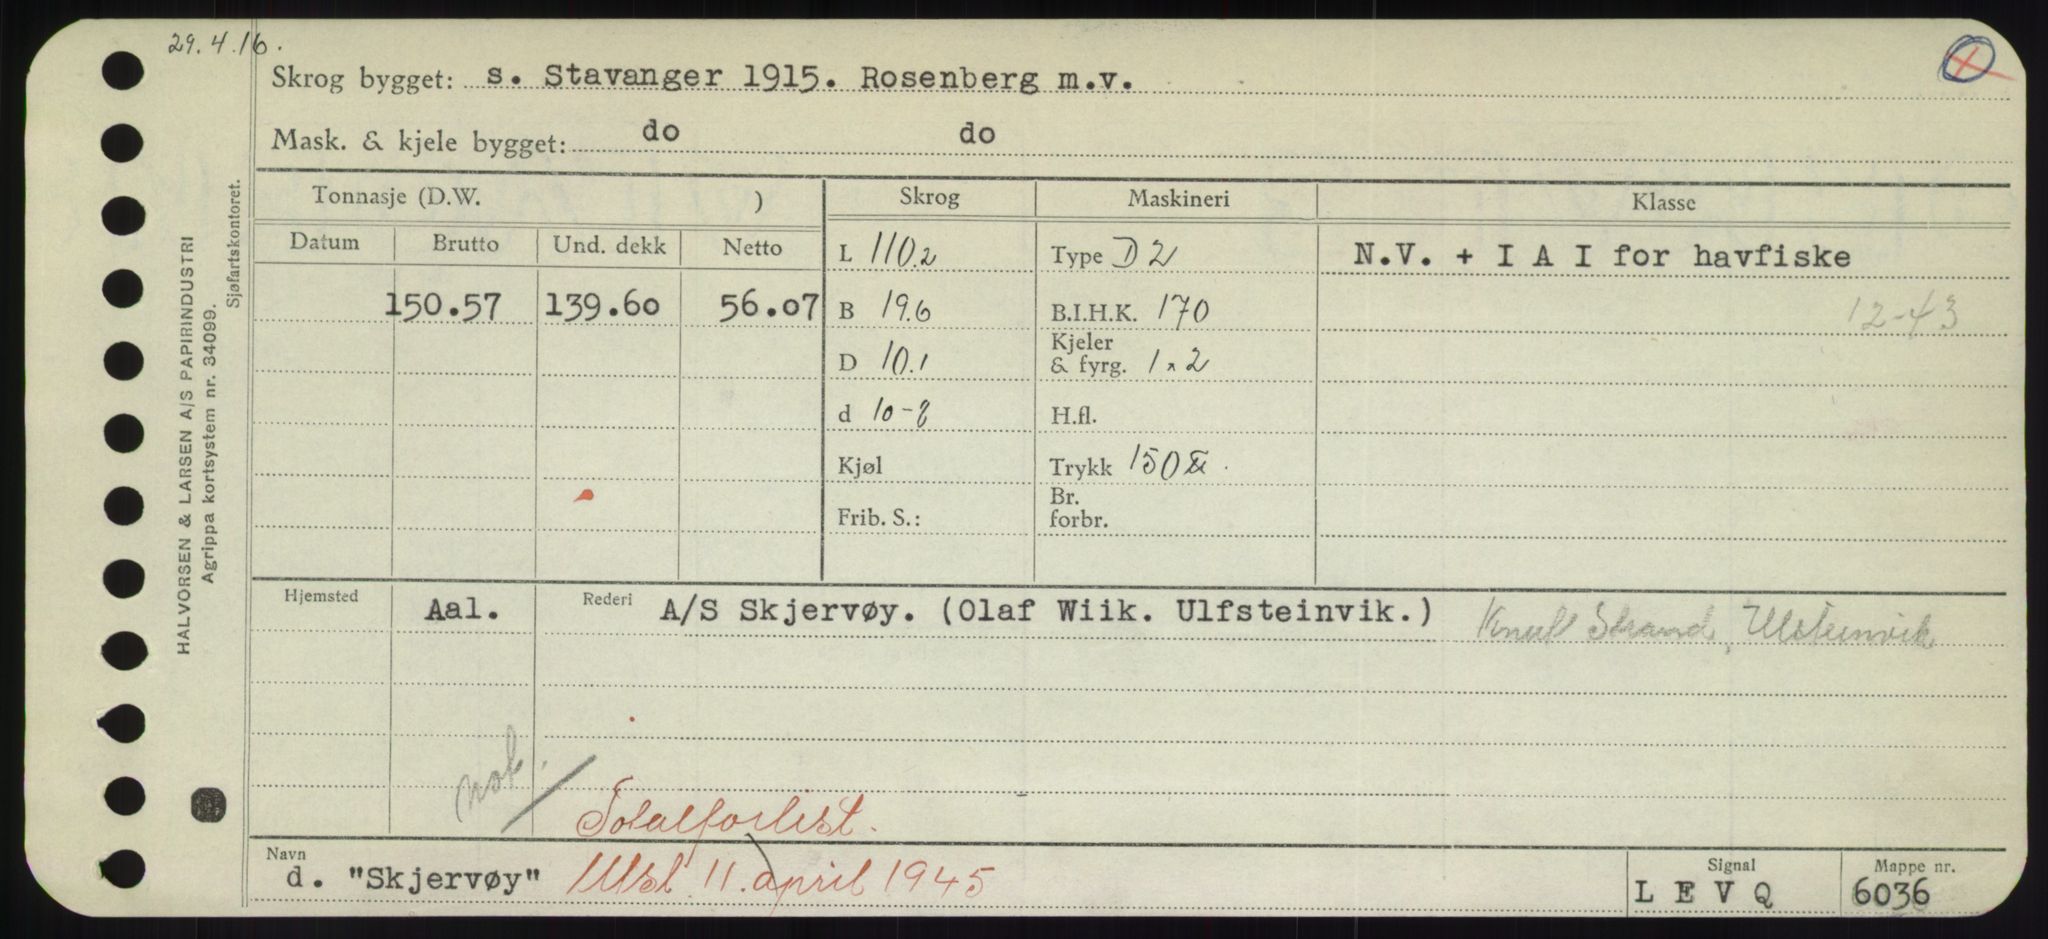 29.4.16.
Skrog bygget: s. Stavanger 1915. Rosenberg m.v.
Mask. & kjele bygget: do do
Tonnasje (D.W. ) Skrog Maskineri Klasse
Datum Brutto Und. dekk Netto
L 110.2 Type D 2 N.V. + I A I for havfiske
150.57 139.60 56.07 B 19.6 B.I.H.K. 170 12-43
D 10.1 Kjeler & fyrg. 1 x 2
d 10-8 H.fl.
Kjøl Trykk 150
Frib. S.: Br. forbr.
Hjemsted Aal. Rederi A/S Skjervøy. (Olaf Wiik. Ulfsteinvik.) Knut Strand, Ulsteinvik
not.
Totalforlist.
Navn d. "Skjervøy" 11. april 1945
Signal L E V Q
Mappe nr. 6036
HALVORSEN & LARSEN A/S PAPIRINDUSTRI
Agrippa kortsystem nr. 34099.
Sjøfartskontoret.